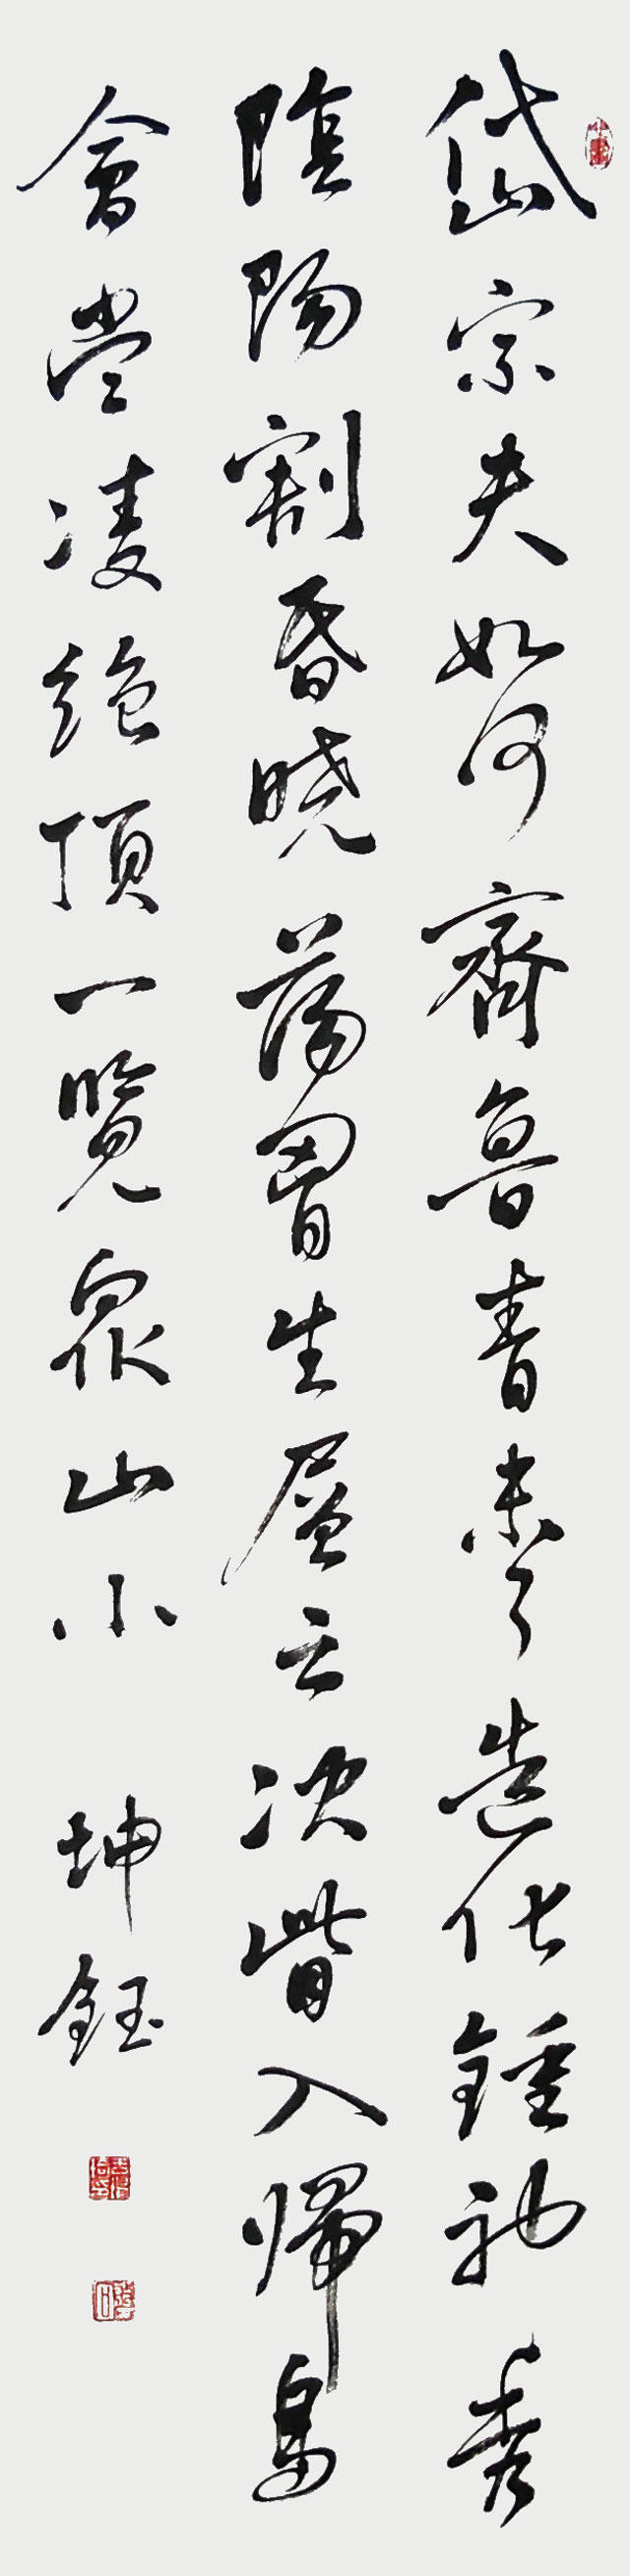 岱宗夫如何齊魯青未了造化鍾神秀
陰陽割昏曉蕩胷生層云決眥入歸鳥
會當凌絶頂一覽衆山小 坤鈺